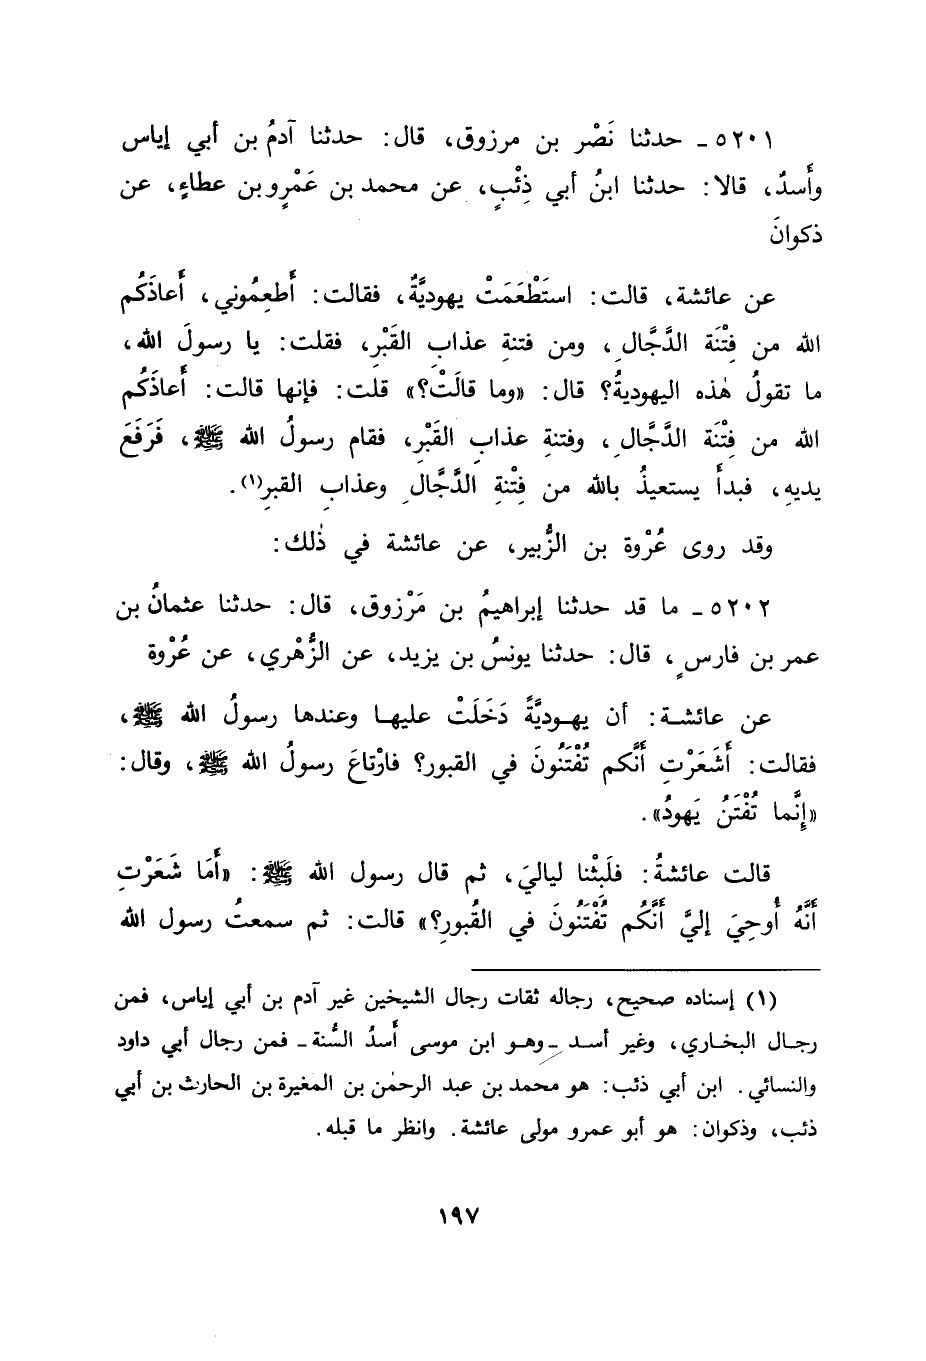 ٥٢٠١ ـ حدثنا نَصْر بن مرزوق، قال: حدثنا آدمُ بن أبي إياس
وأَسدٌ، قالا: حدثنا ابنُ أبي ذِئْبٍ، عن محمد بن عَمْرِو بن عطاءٍ، عن
ذكوانَ
عن عائشة، قالت: استَطْعَمَتْ يهوديَّةٌ، فقالت: أَطعِمُوني، أَعاذَكُم
الله من فِتْنَة الدَّجَّالِ، ومن فتنةِ عذابِ القَبْرِ، فقلت: يا رسولَ الله،
ما تقولُ هٰذه اليهوديةُ؟ قال: «وما قالَتْ؟» قلت: فإنها قالت: أَعاذَكُم
الله من فِتْنَة الدَّجَّالِ، وفتنةِ عذابِ القَبْرِ، فقام رسولُ الله ﷺ، فَرَفَعَ
يديهِ، فبدأَ يستعيذُ بالله من فِتْنةِ الدَّجَّالِ وعذابِ القبرِ(١).
وقد روى عُرْوة بن الزُّبير، عن عائشة في ذٰلك:
٥٢٠٢ ـ ما قد حدثنا إبراهيمُ بن مَرْزوق، قال: حدثنا عثمانُ بن
عمر بن فارسٍ، قال: حدثنا يونسُ بن يزيد، عن الزُّهْري، عن عُرْوة
عن عائشة: أن يهوديَّةً دَخَلَتْ عليها وعندها رسولُ الله ﷺ،
فقالت: أَشَعَرْتِ أَنَّكم تُفْتَنُونَ في القبور؟ فارْتاعَ رسولُ الله ﷺ، وقال:
«إِنَّما تُفْتَنُ يَهودُ».
قالت عائشةُ: فلَبِثْنا لياليَ، ثم قال رسول الله ﷺ: «أَمَا شَعَرْتِ
أَنَّهُ أُوحِيَ إليَّ أَنَّكُم تُفْتَنُونَ في القُبورِ؟» قالت: ثم سمعتُ رسول الله
(١) إسناده صحيح، رجاله ثقات رجال الشيخين غير آدم بن أبي إياس، فمن
رجال البخاري، وغير أسد ـ وهو ابن موسى أَسدُ السُّنة ـ فمن رجال أبي داود
والنسائي. ابن أبي ذئب: هو محمد بن عبد الرحمٰن بن المغيرة بن الحارث بن أبي
ذئب، وذكوان: هو أبو عمرو مولى عائشة. وانظر ما قبله.
١٩٧